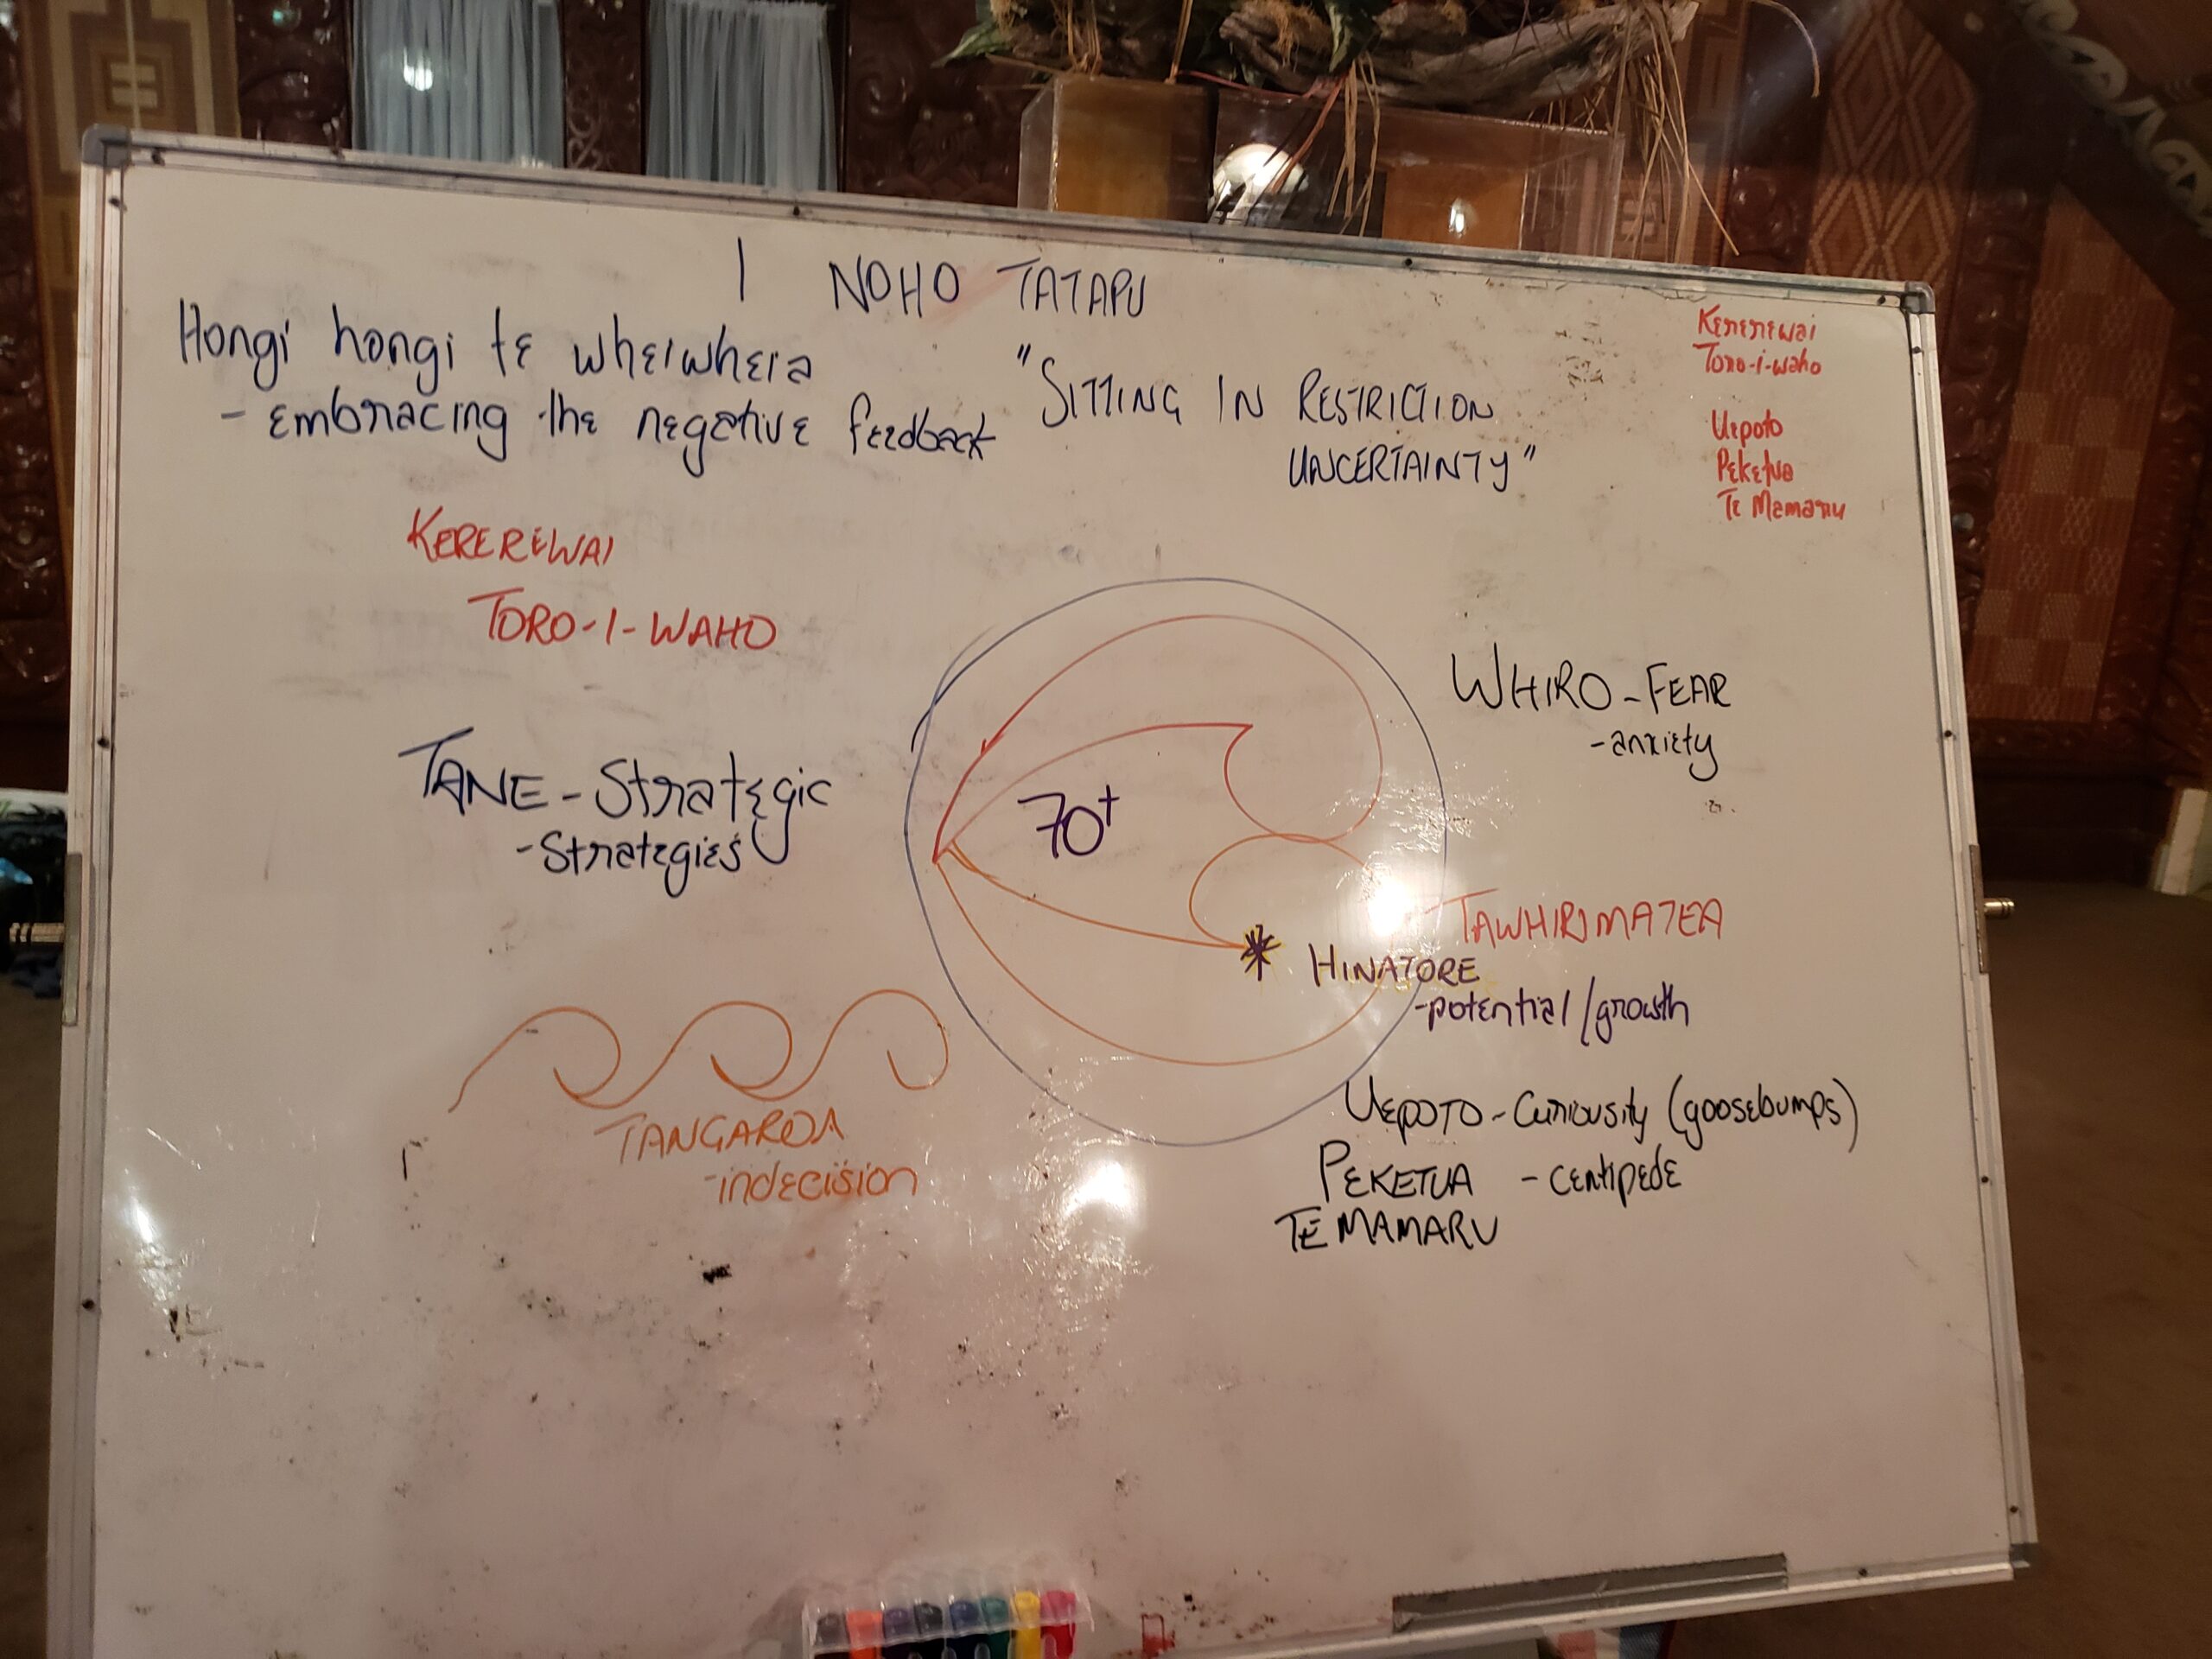 I NOHO TATAPU
Hongi hongi te wheiwheia
- embracing the negative feedback
"SITTING IN RESTRICTION
UNCERTAINTY"
Kererewai
Toro-i-waho
Uepoto
Peketua
Te Mamaru
KEREREWAI
TORO-I-WAHO
WHIRO - FEAR
- anxiety
TANE - Strategic
- Strategies
70+
TAWHIRIMATEA
HINATORE
- potential/growth
TANGAROA
- indecision
UEPOTO - Curiousity (goosebumps)
PEKETUA - centipede
TE MAMARU